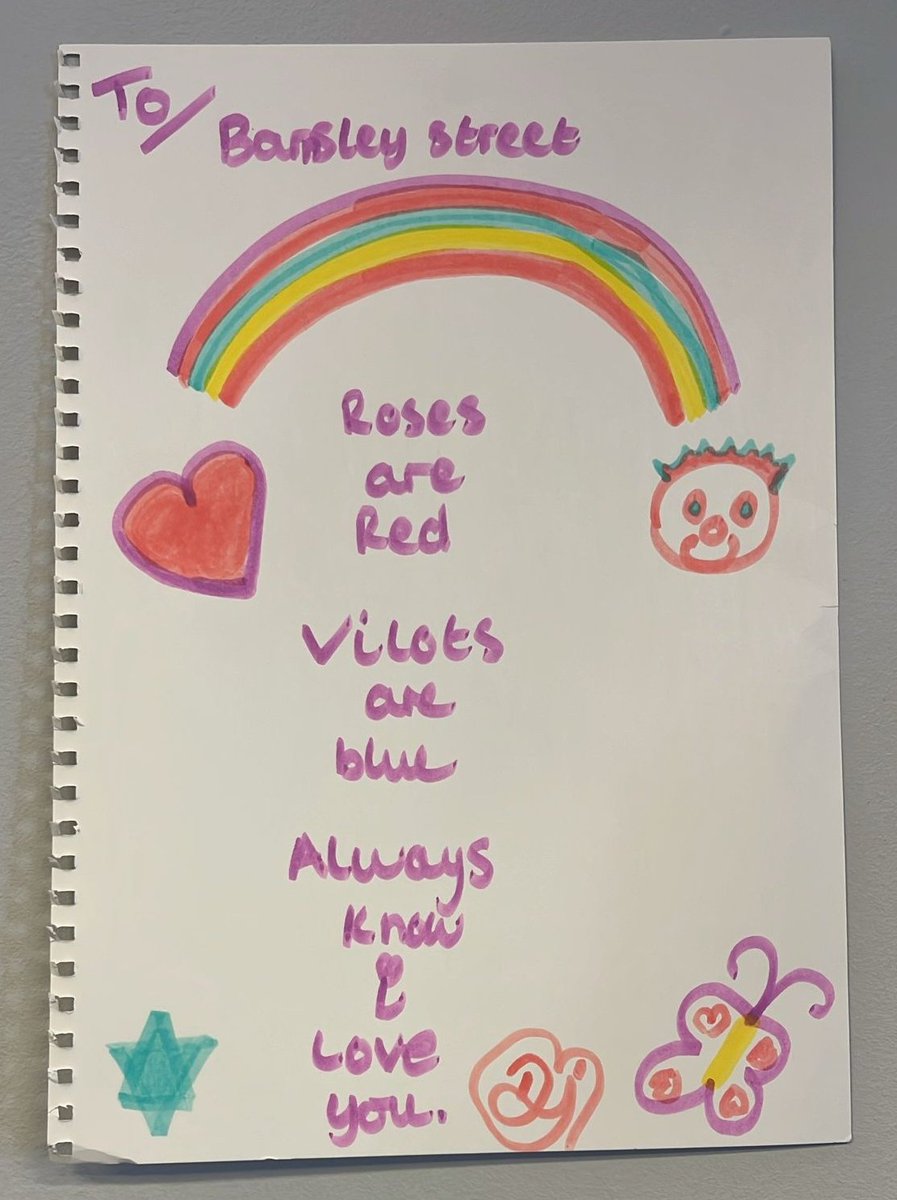 To/
Barnsley street
Roses
are
Red
Vilots
are
blue
Always
know
i
Love
you.